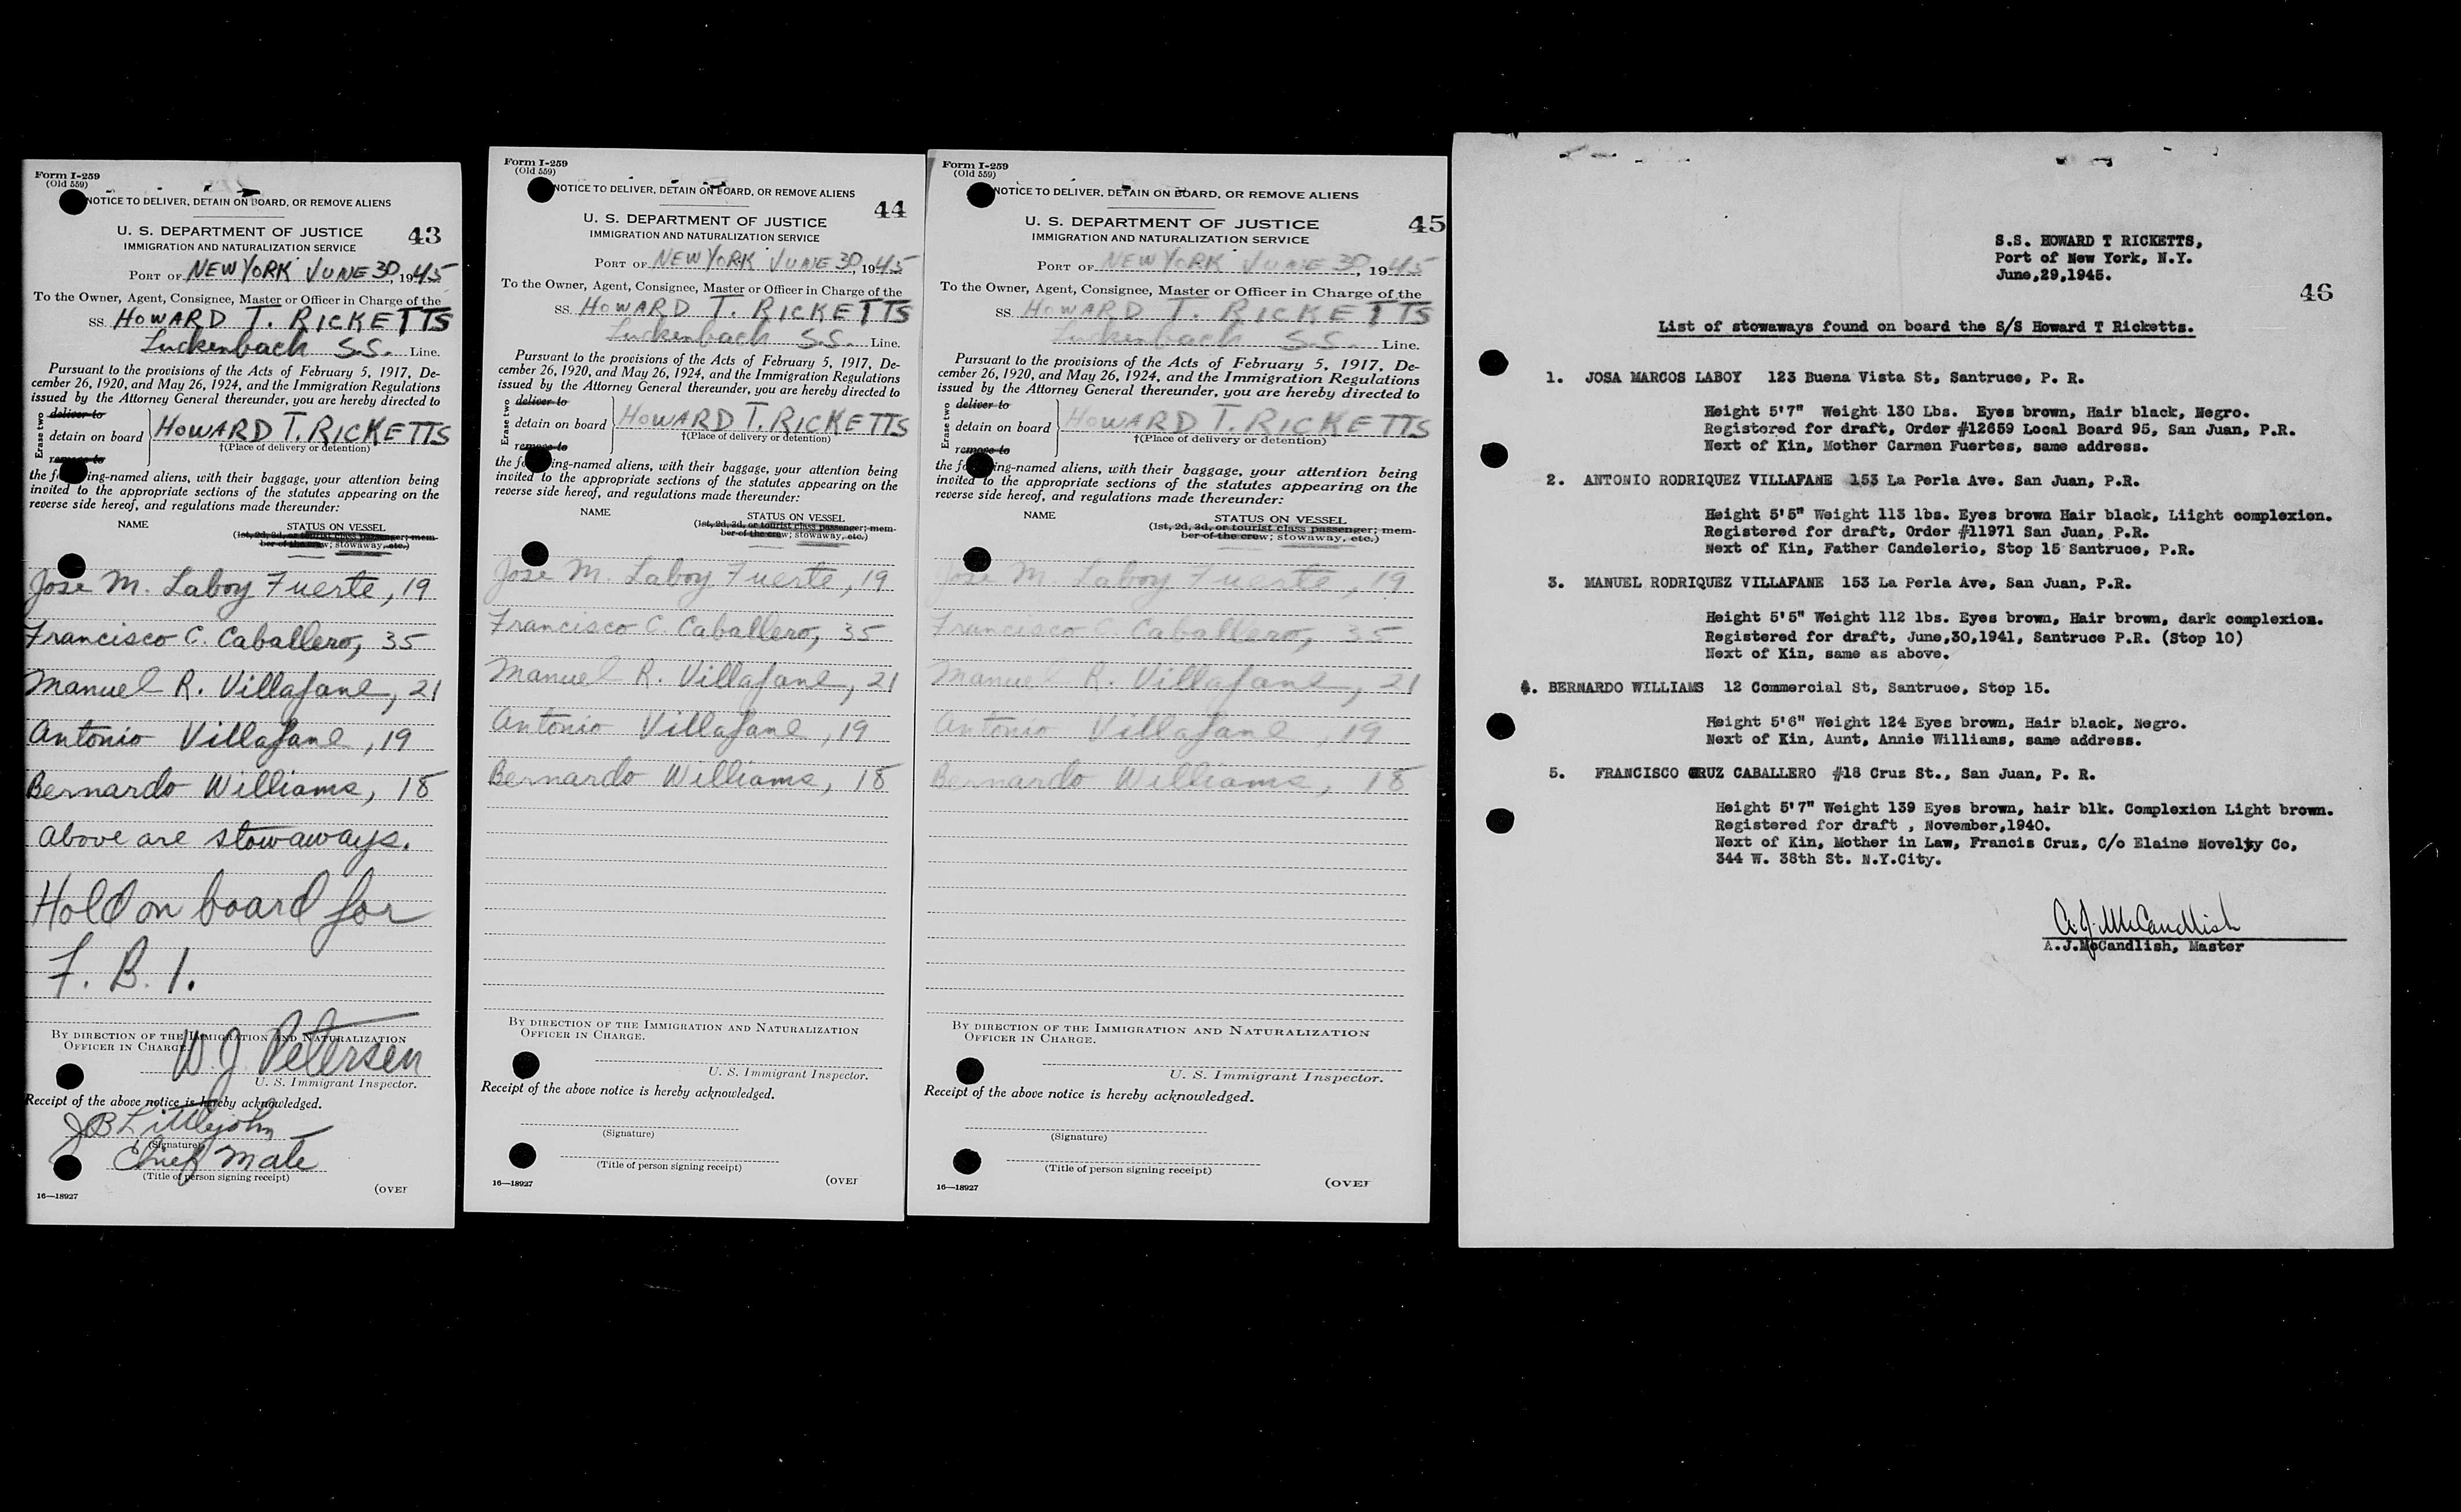 Form I-259
(Old 559)
NOTICE TO DELIVER, DETAIN ON BOARD, OR REMOVE ALIENS
U. S. DEPARTMENT OF JUSTICE
43
IMMIGRATION AND NATURALIZATION SERVICE
PORT OF NEW YORK JUNE 30, 1945
To the Owner, Agent, Consignee, Master or Officer in Charge of the
SS. HOWARD T. RICKETTS
Luckenbach S.S. Line.
Pursuant to the provisions of the Acts of February 5, 1917, De-
cember 26, 1920, and May 26, 1924, and the Immigration Regulations
issued by the Attorney General thereunder, you are hereby directed to
Erase two
deliver to
detain on board HOWARD T. RICKETTS
†(Place of delivery or detention)
remove to
the following-named aliens, with their baggage, your attention being
invited to the appropriate sections of the statutes appearing on the
reverse side hereof, and regulations made thereunder:
NAME STATUS ON VESSEL
(1st, 2d, 3d, or tourist class passenger; mem-
ber of the crew; stowaway, etc.)
Jose M. Laboy Fuerte, 19
Francisco C. Caballero, 35
Manuel R. Villafane, 21
Antonio Villafane, 19
Bernardo Williams, 18
above are stowaways.
Hold on board for
F. B. I.
BY DIRECTION OF THE IMMIGRATION AND NATURALIZATION
OFFICER IN CHARGE.
W. J. Petersen
U. S. Immigrant Inspector.
Receipt of the above notice is hereby acknowledged.
J B Littlejohn
(Signature)
Chief Mate
(Title of person signing receipt)
16—18927 (OVER
Form I-259
(Old 559)
NOTICE TO DELIVER, DETAIN ON BOARD, OR REMOVE ALIENS
44
U. S. DEPARTMENT OF JUSTICE
IMMIGRATION AND NATURALIZATION SERVICE
PORT OF NEW YORK JUNE 30, 1945
To the Owner, Agent, Consignee, Master or Officer in Charge of the
SS. HOWARD T. RICKETTS
Luckenbach S.S. Line.
Pursuant to the provisions of the Acts of February 5, 1917, De-
cember 26, 1920, and May 26, 1924, and the Immigration Regulations
issued by the Attorney General thereunder, you are hereby directed to
Erase two
deliver to
detain on board HOWARD T. RICKETTS
†(Place of delivery or detention)
remove to
the following-named aliens, with their baggage, your attention being
invited to the appropriate sections of the statutes appearing on the
reverse side hereof, and regulations made thereunder:
NAME STATUS ON VESSEL
(1st, 2d, 3d, or tourist class passenger; mem-
ber of the crew; stowaway, etc.)
Jose M. Laboy Fuerte, 19
Francisco C. Caballero, 35
Manuel R. Villafane, 21
Antonio Villafane, 19
Bernardo Williams, 18
BY DIRECTION OF THE IMMIGRATION AND NATURALIZATION
OFFICER IN CHARGE.
U. S. Immigrant Inspector.
Receipt of the above notice is hereby acknowledged.
(Signature)
(Title of person signing receipt)
16—18927 (OVER
Form I-259
(Old 559)
NOTICE TO DELIVER, DETAIN ON BOARD, OR REMOVE ALIENS
U. S. DEPARTMENT OF JUSTICE
45
IMMIGRATION AND NATURALIZATION SERVICE
PORT OF NEW YORK JUNE 30, 1945
To the Owner, Agent, Consignee, Master or Officer in Charge of the
SS. HOWARD T. RICKETTS
Luckenbach S.S. Line.
Pursuant to the provisions of the Acts of February 5, 1917, De-
cember 26, 1920, and May 26, 1924, and the Immigration Regulations
issued by the Attorney General thereunder, you are hereby directed to
Erase two
deliver to
detain on board HOWARD T. RICKETTS
†(Place of delivery or detention)
remove to
the following-named aliens, with their baggage, your attention being
invited to the appropriate sections of the statutes appearing on the
reverse side hereof, and regulations made thereunder:
NAME STATUS ON VESSEL
(1st, 2d, 3d, or tourist class passenger; mem-
ber of the crew; stowaway, etc.)
Jose M. Laboy Fuerte, 19
Francisco C. Caballero, 35
Manuel R. Villafane, 21
Antonio Villafane, 19
Bernardo Williams, 18
BY DIRECTION OF THE IMMIGRATION AND NATURALIZATION
OFFICER IN CHARGE.
U. S. Immigrant Inspector.
Receipt of the above notice is hereby acknowledged.
(Signature)
(Title of person signing receipt)
16—18927 (OVER
S.S. HOWARD T RICKETTS,
Port of New York, N.Y.
June,29,1945.
46
List of stowaways found on board the S/S Howard T Ricketts.
1. JOSA MARCOS LABOY 123 Buena Vista St, Santruce, P. R.
Height 5'7" Weight 130 Lbs. Eyes brown, Hair black, Negro.
Registered for draft, Order #12659 Local Board 95, San Juan, P.R.
Next of Kin, Mother Carmen Fuertes, same address.
2. ANTONIO RODRIQUEZ VILLAFANE 153 La Perla Ave. San Juan, P.R.
Height 5'5" Weight 113 lbs. Eyes brown Hair black, Liight complexion.
Registered for draft, Order #11971 San Juan, P.R.
Next of Kin, Father Candelerio, Stop 15 Santruce, P.R.
3. MANUEL RODRIQUEZ VILLAFANE 153 La Perla Ave, San Juan, P.R.
Height 5'5" Weight 112 lbs. Eyes brown, Hair brown, dark complexion.
Registered for draft, June,30,1941, Santruce P.R. (Stop 10)
Next of Kin, same as above.
4. BERNARDO WILLIAMS 12 Commercial St, Santruce, Stop 15.
Height 5'6" Weight 124 Eyes brown, Hair black, Negro.
Next of Kin, Aunt, Annie Williams, same address.
5. FRANCISCO CRUZ CABALLERO #18 Cruz St., San Juan, P. R.
Height 5'7" Weight 139 Eyes brown, hair blk. Complexion Light brown.
Registered for draft , November,1940.
Next of Kin, Mother in Law, Francis Cruz, C/o Elaine Novelty Co,
344 W. 38th St. N.Y.City.
A. J. McCandlish
A.J.McCandlish, Master